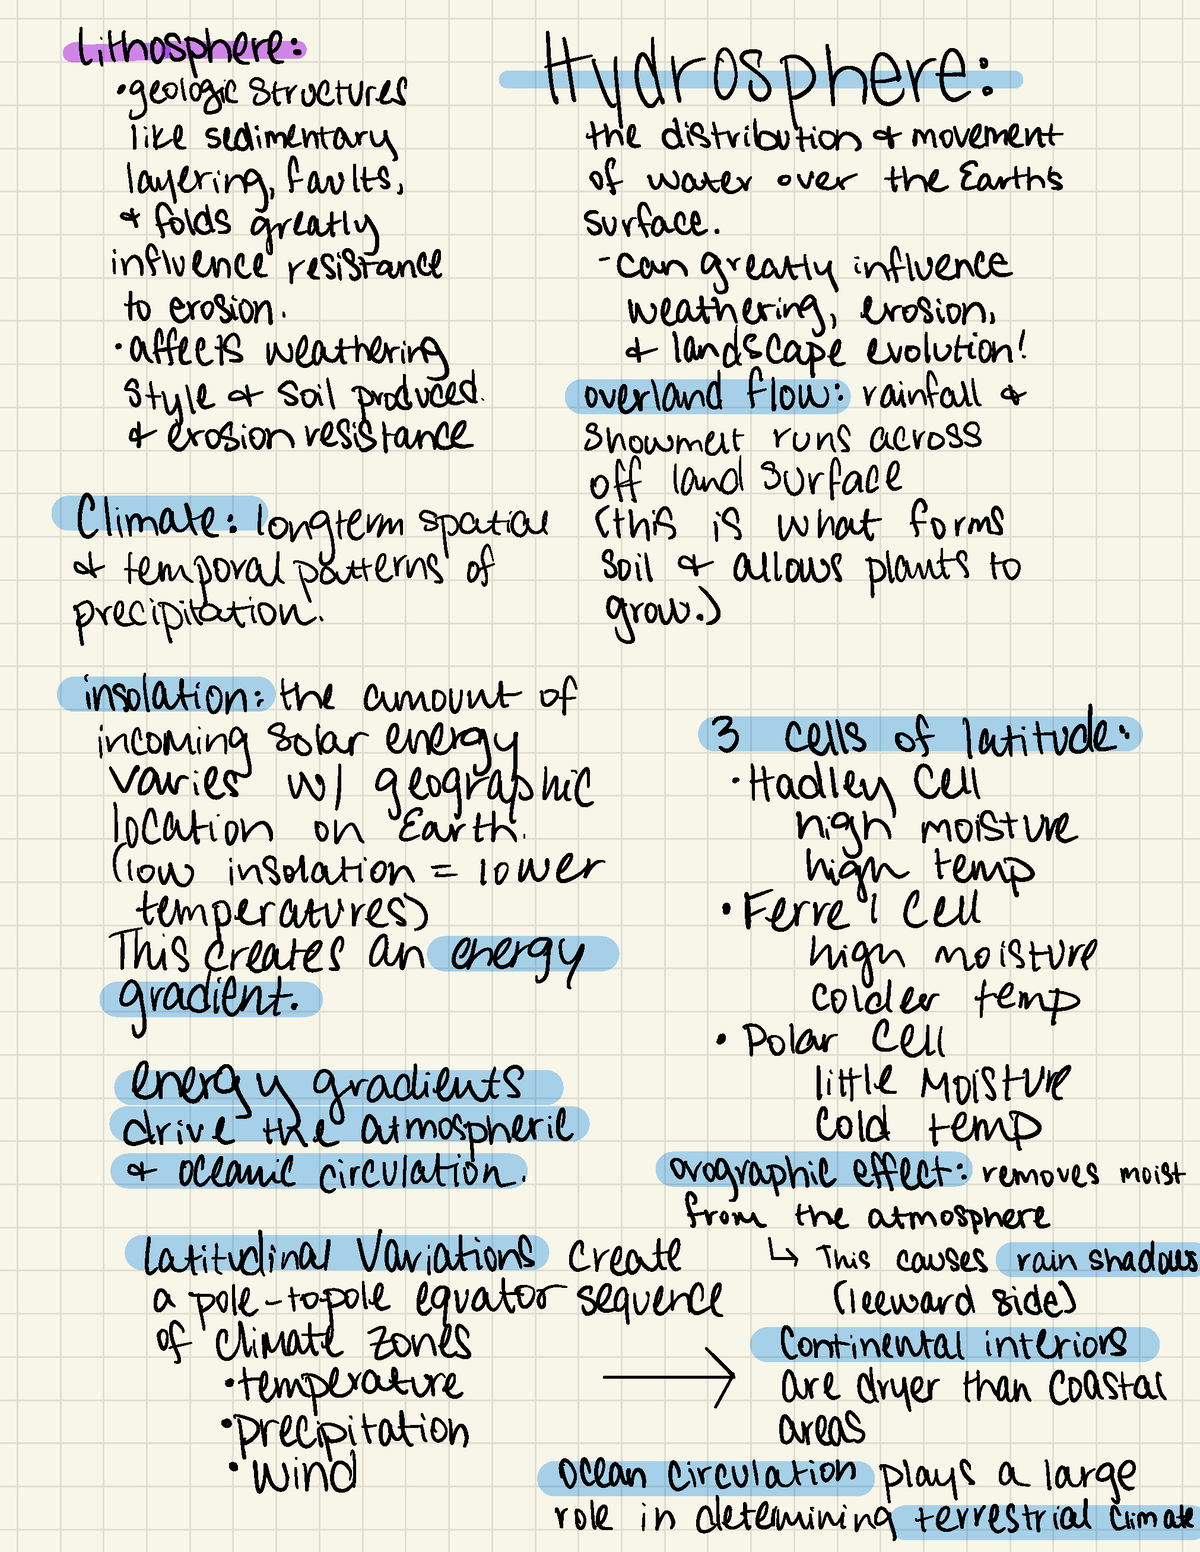 Lithosphere:
•geologic structures
like sedimentary
layering, faults,
& folds greatly
influence resistance
to erosion.
•affects weathering
style & soil produced.
& erosion resistance
Climate: longterm spatial
& temporal patterns of
precipitation.
insolation: the amount of
incoming solar energy
varies w/ geographic
location on Earth.
(low insolation = lower
temperatures)
This creates an energy
gradient.
energy gradients
drive the atmospheric
& oceanic circulation.
latitudinal variations create
a pole-to-pole equator sequence
of climate zones
•temperature
•precipitation
•wind
Hydrosphere:
the distribution & movement
of water over the Earth's
surface.
-can greatly influence
weathering, erosion,
& landscape evolution!
overland flow: rainfall &
snowmelt runs across
off land surface
(this is what forms
soil & allows plants to
grow.)
3 cells of latitude:
•Hadley Cell
high moisture
high temp
•Ferrel Cell
high moisture
colder temp
•Polar Cell
little moisture
cold temp
orographic effect: removes moist
from the atmosphere
↳ This causes rain shadows
(leeward side)
→ Continental interiors
are dryer than coastal
areas
ocean circulation plays a large
role in determining terrestrial climate